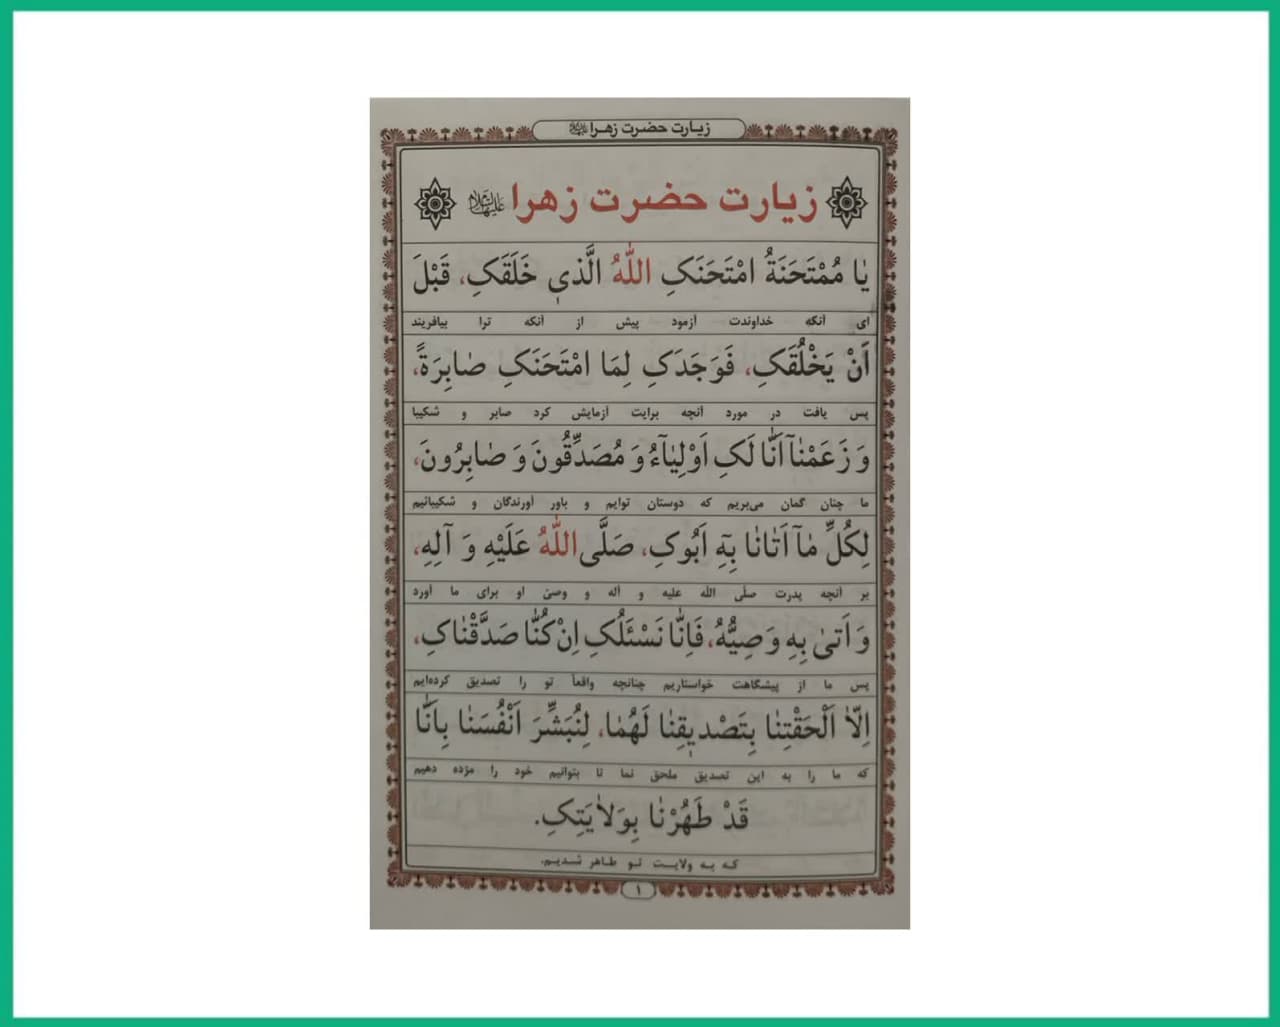 زیارت حضرت زهرا علیها السلام
زیارت حضرت زهرا علیها السلام
یٰا مُمْتَحَنَةُ امْتَحَنَکِ اللّٰهُ الَّذی خَلَقَکِ، قَبْلَ
ای آنکه خداوندت آزمود پیش از آنکه ترا بیافریند
اَنْ یَخْلُقَکِ، فَوَجَدَکِ لِمَا امْتَحَنَکِ صٰابِرَةً،
پس یافت در مورد آنچه برایت آزمایش کرد صابر و شکیبا
وَ زَعَمْنٰآ اَنّٰا لَکِ اَوْلِیٰآءُ وَ مُصَدِّقُونَ وَ صٰابِرُونَ،
ما چنان گمان می‌بریم که دوستان توایم و باور آورندگان و شکیبائیم
لِکُلِّ مٰآ اَتٰانٰا بِهٖٓ اَبُوکِ، صَلَّی اللّٰهُ عَلَیْهِ وَ آلِهِ،
بر آنچه پدرت صلّی الله علیه و آله و وصیّ او برای ما آورد
وَ اَتیٰ بِهِ وَصِیُّهُ، فَاِنّٰا نَسْئَلُکِ اِنْ کُنّٰا صَدَّقْنٰاکِ،
پس ما از پیشگاهت خواستاریم چنانچه واقعاً تو را تصدیق کرده‌ایم
اِلّٰا اَلْحَقْتِنٰا بِتَصْدیقِنٰا لَهُمٰا، لِنُبَشِّرَ اَنْفُسَنٰا بِاَنّٰا
که ما را به این تصدیق ملحق نما تا بتوانیم خود را مژده دهیم
قَدْ طَهُرْنٰا بِوَلاٰیَتِکِ.
که به ولایت تو طاهر شدیم.
۱